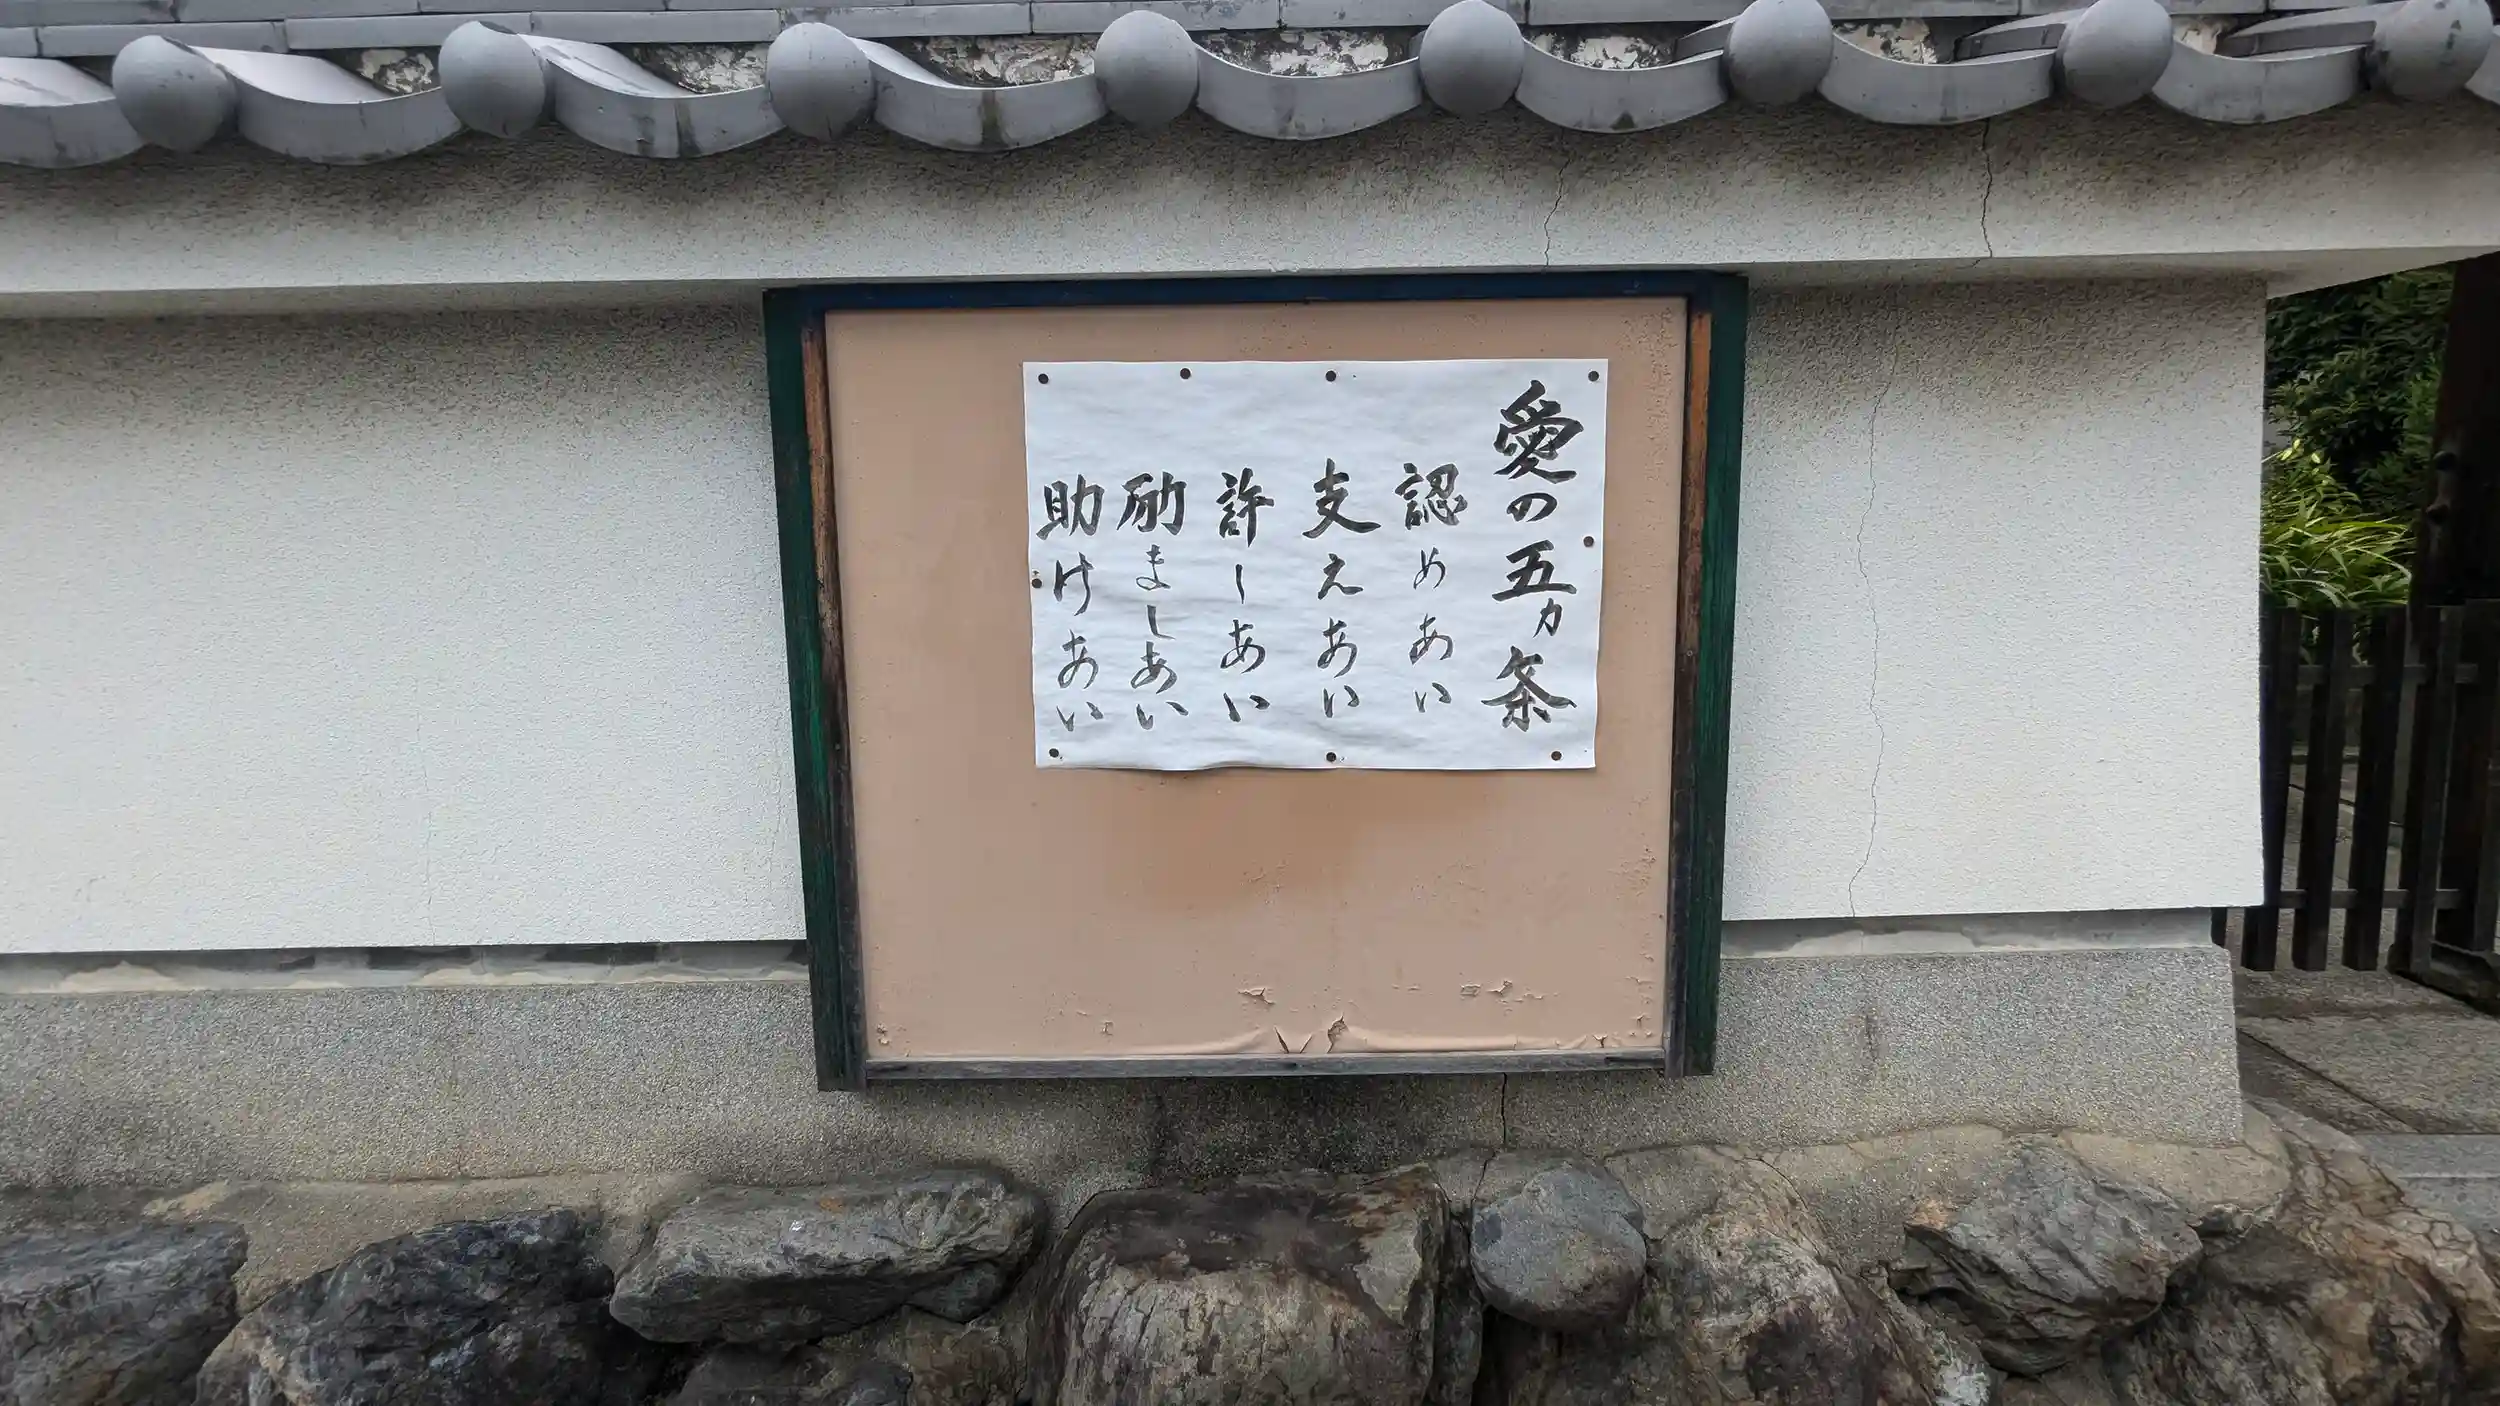 愛の五カ条
認めあい
支えあい
許しあい
励ましあい
助けあい